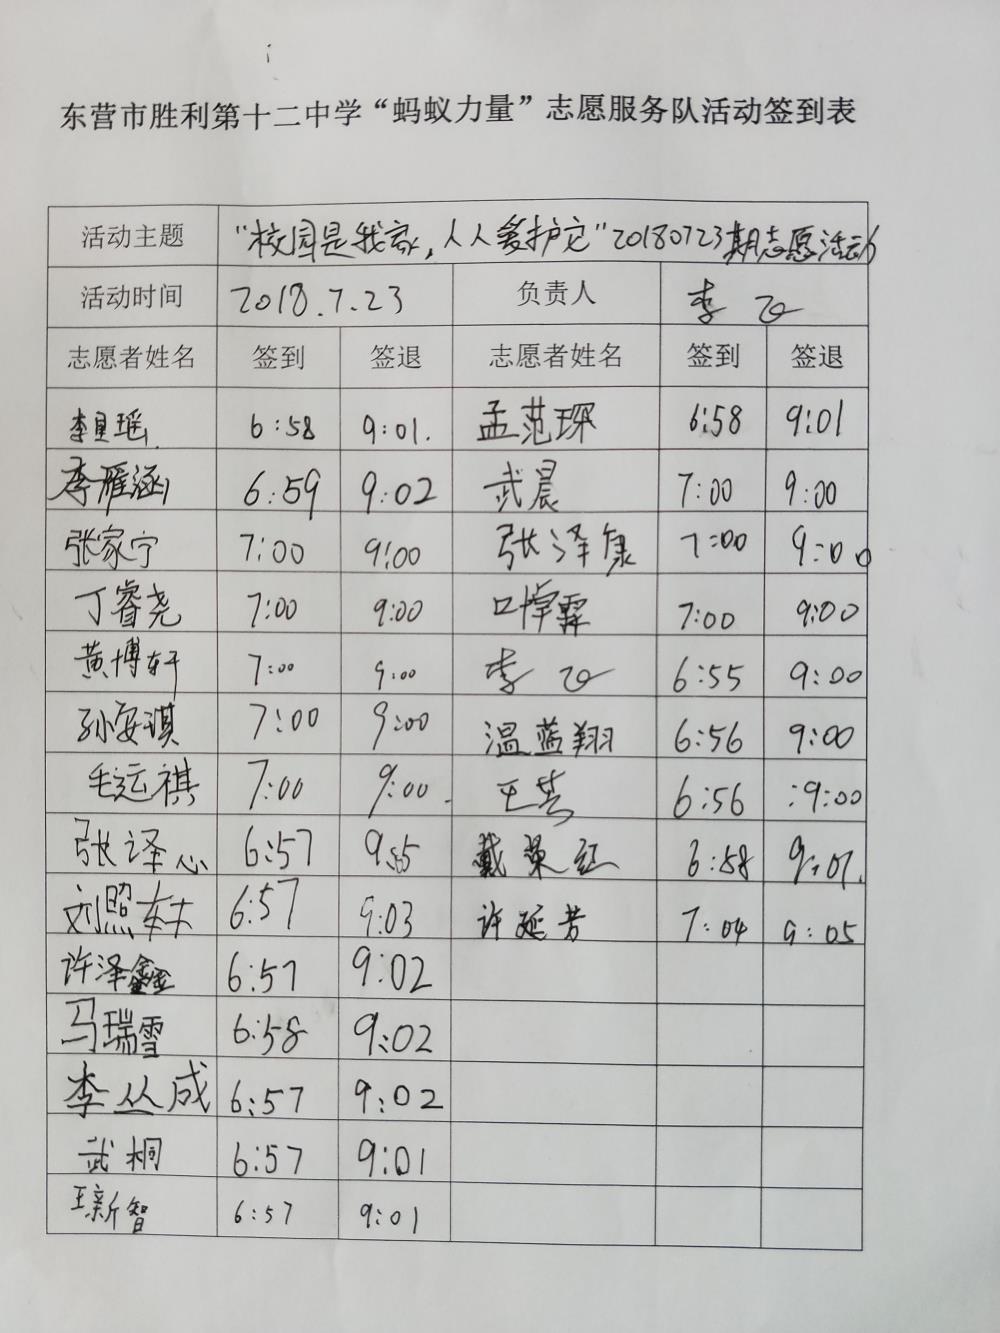 东营市胜利第十二中学“蚂蚁力量”志愿服务队活动签到表
活动主题 “校园是我家,人人爱护它”20180723期志愿活动
活动时间 2018.7.23 负责人 李
志愿者姓名 签到 签退 志愿者姓名 签到 签退
李昱瑶 6:58 9:01. 孟范琛 6:58 9:01
李雁涵 6:59 9:02 武晨 7:00 9:00
张家宁 7:00 9:00 张泽康 7:00 9:00
丁睿尧 7:00 9:00 霖 7:00 9:00
黄博轩 7:00 9:00 李 6:55 9:00
孙安琪 7:00 9:00 温蓝翔 6:56 9:00
毛远祺 7:00 9:00. 王 6:56 :9:00
张译心 6:57 戴荣红 6:58 9:01.
刘照 6:57 9:03 许延芳 7:04 9:05
许泽鑫 6:57 9:02
马瑞雪 6:58 9:02
李丛成 6:57 9:02
武桐 6:57 9:01
王新智 6:57 9:01